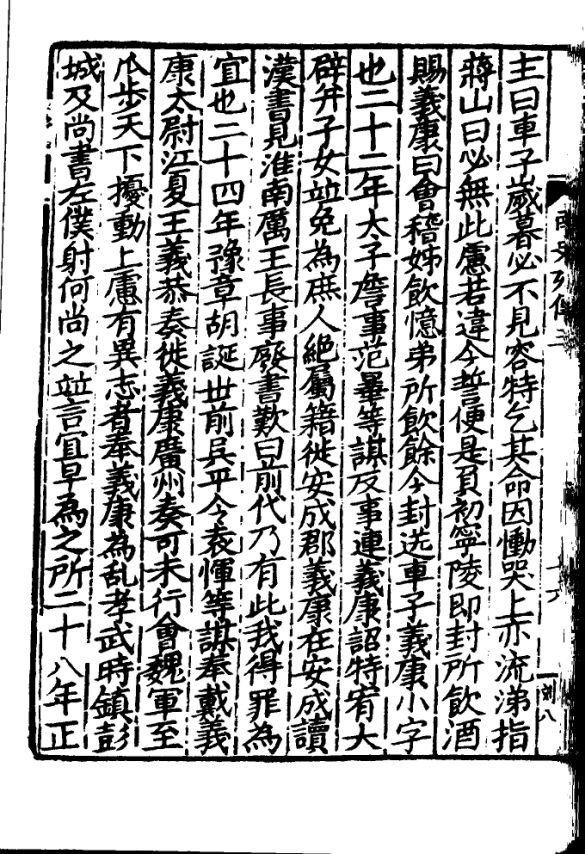 主曰車子嵗暮必不見容特乞其命因慟哭上亦流涕指
蔣山曰必無此慮若違今誓便是負初寧陵即封所飲酒
賜義康曰會稽姊飲憶弟所飲餘今封送車子義康小字
也二十二年太子詹事范曅等謀反事連義康詔特宥大
辟并子女並免為庶人絶屬籍徙安成郡義康在安成讀
漢書見淮南厲王長事廢書歎曰前代乃有此我得罪為
宜也二十四年豫章胡誕世前吳平令袁惲等謀奉戴義
康太尉江夏王義恭奏徙義康廣州奏可未行會魏軍至
瓜步天下擾動上慮有異志者奉義康為乱孝武時鎮彭
城及尚書左僕射何尚之並言宜早為之所二十八年正